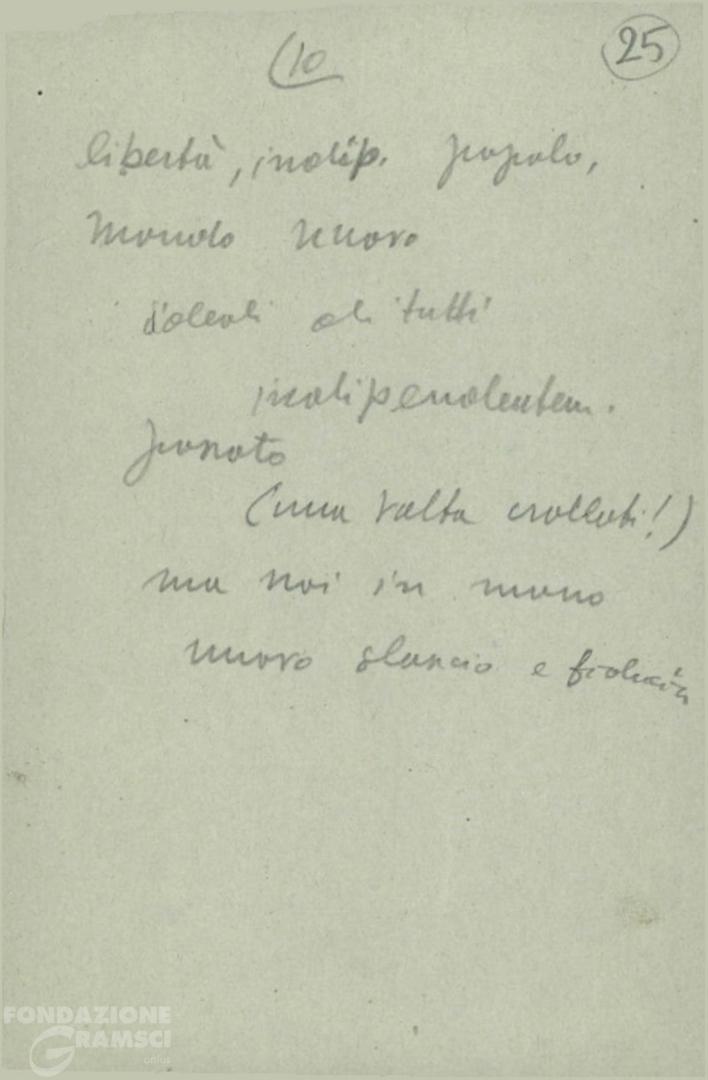 (10
25
libertà, indip. popolo,
mondo nuovo
ideali di tutti
indipendentem.
passato
(una volta crollati!)
ma noi in mano
nuovo slancio e fiducia
FONDAZIONE
GRAMSCI
onlus